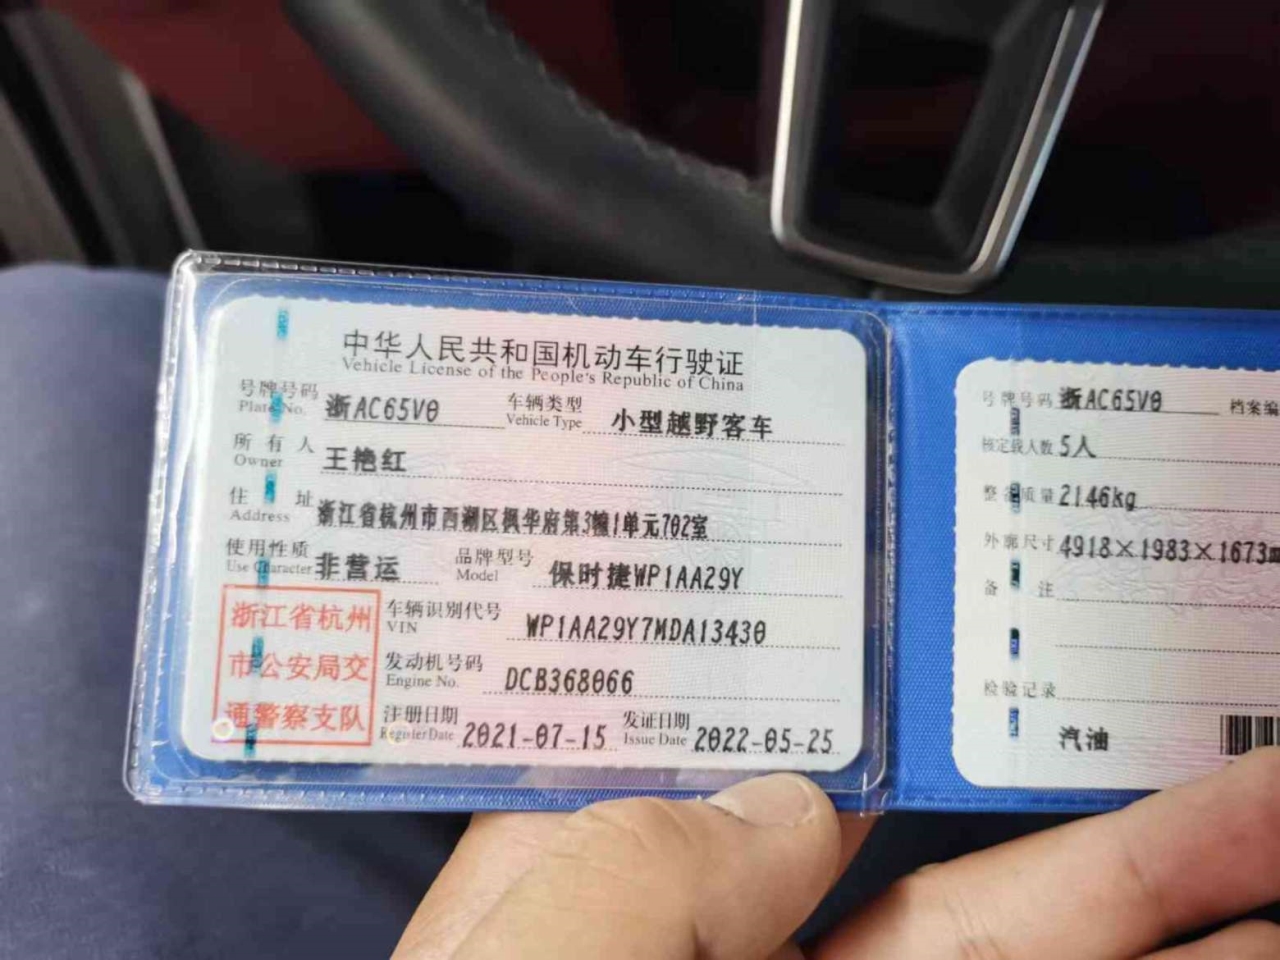 中华人民共和国机动车行驶证
Vehicle License of the People's Republic of China
号牌号码 浙AC65V0 车辆类型 小型越野客车
Plate No. Vehicle Type
所有人 王艳红
Owner
住址 浙江省杭州市西湖区枫华府第3幢1单元702室
Address
使用性质 非营运 品牌型号 保时捷WP1AA29Y
Use Character Model
浙江省杭州
市公安局交
通警察支队
车辆识别代号 WP1AA29Y7MDA13430
VIN
发动机号码 DCB368066
Engine No.
注册日期 2021-07-15 发证日期 2022-05-25
Register Date Issue Date
号牌号码 浙AC65V0 档案编
核定载人数 5人
整备质量 2146kg
外廓尺寸 4918×1983×1673m
备注
检验记录
汽油